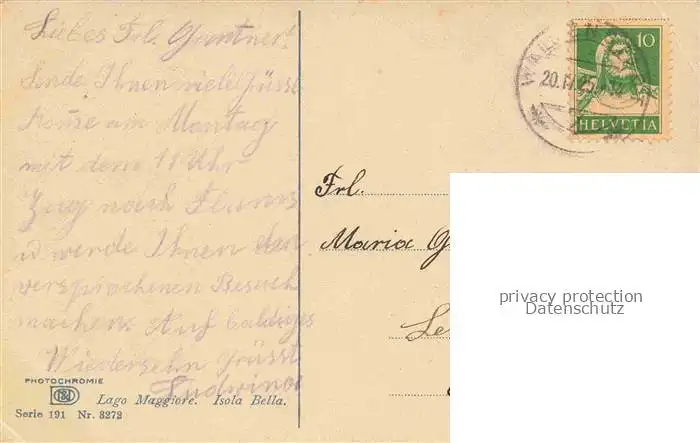 Liebes Frl. Gantner!
Sende Ihnen viele Grüsse
Kom̄e am Montag
mit dem 11 Uhr
Zug nach Flums
u werde Ihnen den
versprochenen Besuch
machen. Auf baldiges
Wiedersehn grüsst
Ludwina
PHOTOCHROMIE
Lago Maggiore. Isola Bella.
Serie 191 Nr. 3272
10
HELVETIA
20.IV.25
Frl.
Maria G
Le
privacy protection
Datenschutz